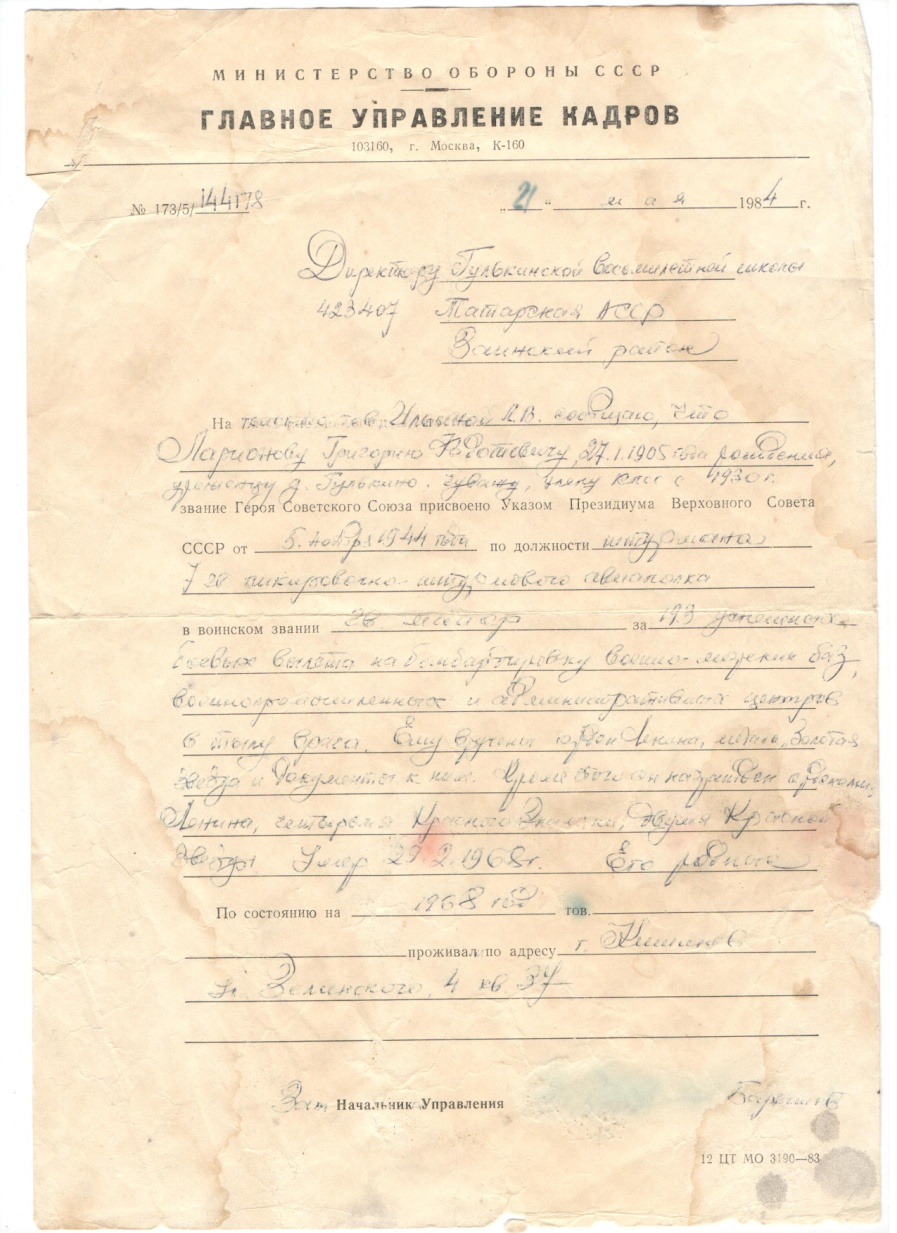 МИНИСТЕРСТВО ОБОРОНЫ СССР
ГЛАВНОЕ УПРАВЛЕНИЕ КАДРОВ
103160, г. Москва, К-160
№ 173/5/144178 „21“ мая 1984 г.
Директору Гулькинской восьмилетней школы
423407 Татарская АССР
Заинский район
На Ильиной Л.В. сообщаю, что
Ларионову Григорию 27.1.1905 года рождения,
уроженцу д. Гулькино. члену КПСС с 1930 г.
звание Героя Советского Союза присвоено Указом Президиума Верховного Совета
СССР от 5. ноября 1944 года по должности штурмана
пикировочно-штурмового авиаполка
в воинском звании гв майор за 193 успешных
боевых вылета на бомбардировку военно-морских баз,
военнопромышленных и административных центров
в тылу врага. Ему вручены орден Ленина, медаль „Золотая
Звезда и документы к ним. Кроме этого он награжден орденами
Ленина, четырьмя Красного Знамени, двумя Красной
Звезды. Умер 29.2.1968г. Его родные
По состоянию на 1968 год тов.
проживал по адресу г. Кишинев
Зелинского, 4 кв. 37
Зам Начальник Управления
12 ЦТ МО 3190—83